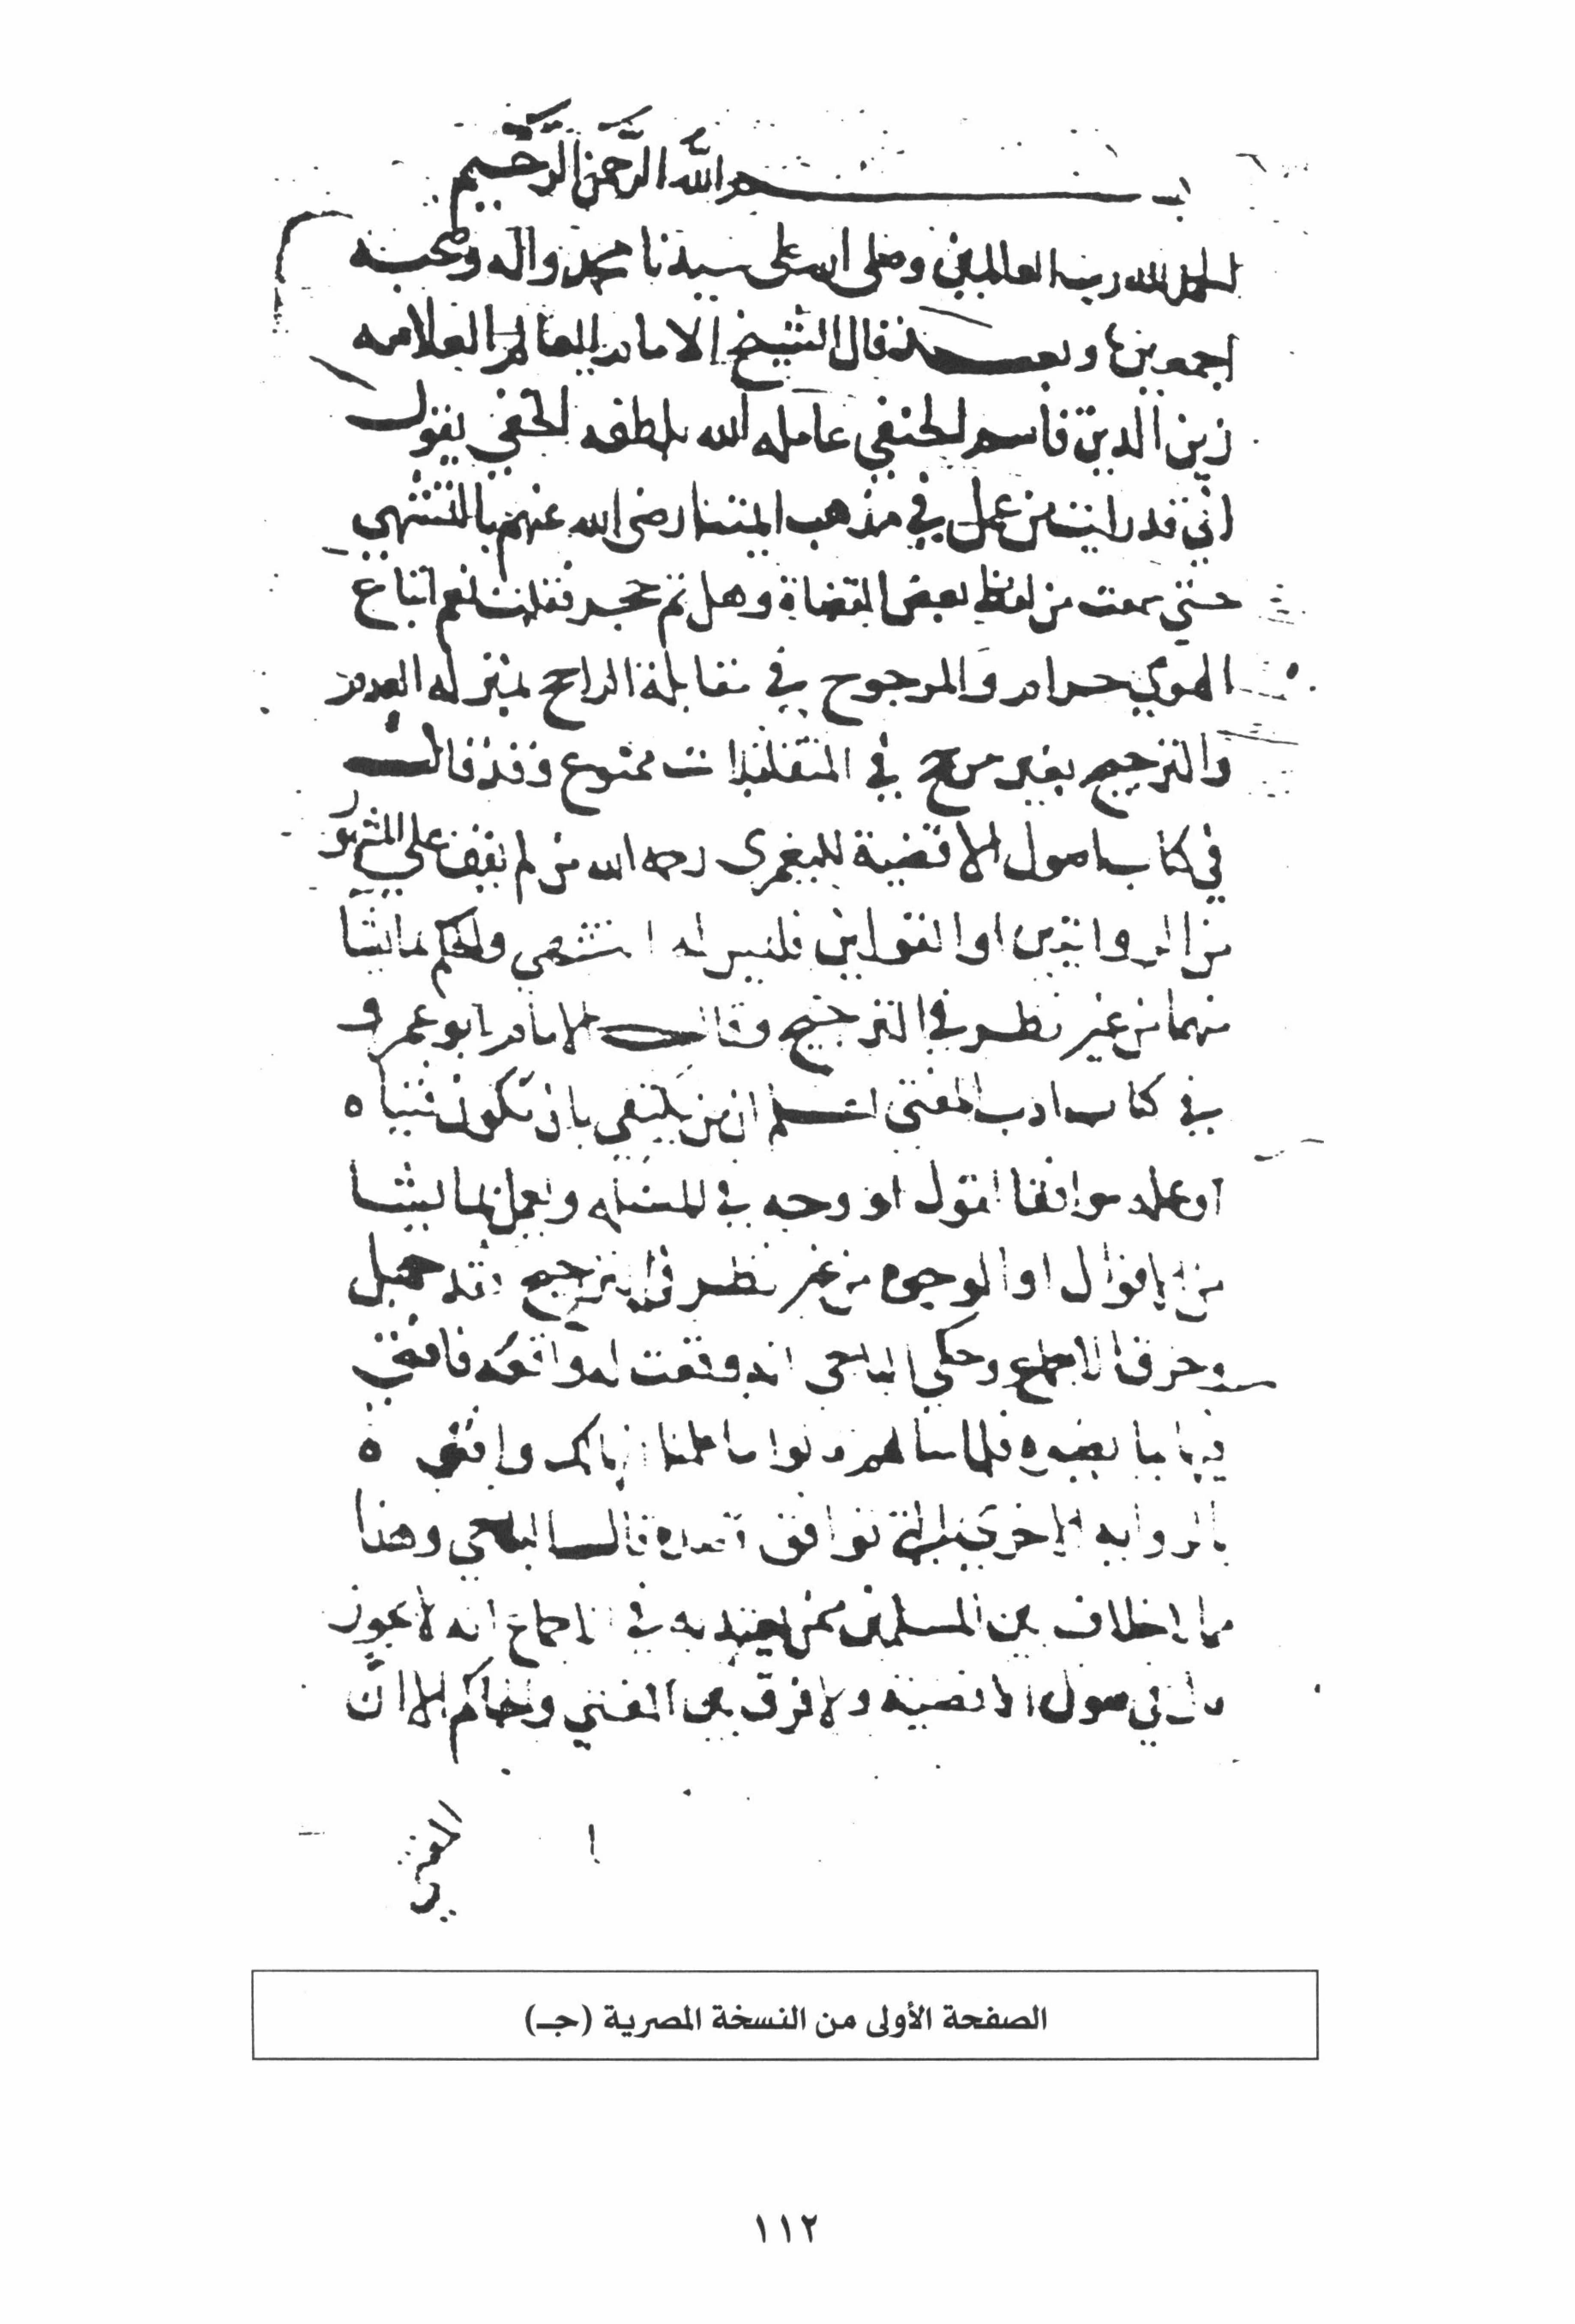 بسم الله الرحمن الرحيم
الحمد لله رب العالمين وصلى الله على سيدنا محمد واله وصحبه
اجمعين وبعد فقال الشيخ الامام العالم العلامه
زين الدين قاسم الحنفي عامله الله بلطفه الخفي يقول
اني قد رايت من عمل في مذهب ائمتنا رضى الله عنهم بالتشهي
حتى سمعت من لفظ بعض القضاة وهل ثم حجر فقلت نعم اتباع
الهوي حرام والمرجوح في مقابلة الراجح بمنزله العدم
والترجيح بغير مرجح في المتقابلات ممنوع وقد قال
في كتاب اصول الاقضية لليعمرى رحمه الله من لم يقف على المشهور
من الروايتين او القولين فليس له التشهي والحكم بما شا
منهما من غير نظر في الترجيح وقال الامام ابو عمرو
في كتاب ادب المفتى اعلم ان من يكتفى بان تكون فتياه
او عمله موافقا لقول او وجه في المسئله ويعمل بما يشا
من الاقوال او الوجوه من غير نظر في الترجيح فقد جهل
وخرق الاجماع وحكي الباجى انه وقعت له واقعه فافتى
فيها بما يضره فلما سالهم قالوا ما علمنا انها لك وافتوه
بالروايه الاخرى التي توافق قصده قال الباجي وهذا
مما لا خلاف بين المسلمين ممن يعتد به في الاجماع انه لا يجوز
قال في اصول الاقضية ولا فرق بين المفتي والحاكم الا ان
المفتي
الصفحة الأولى من النسخة المصرية (جـ)
١١٢